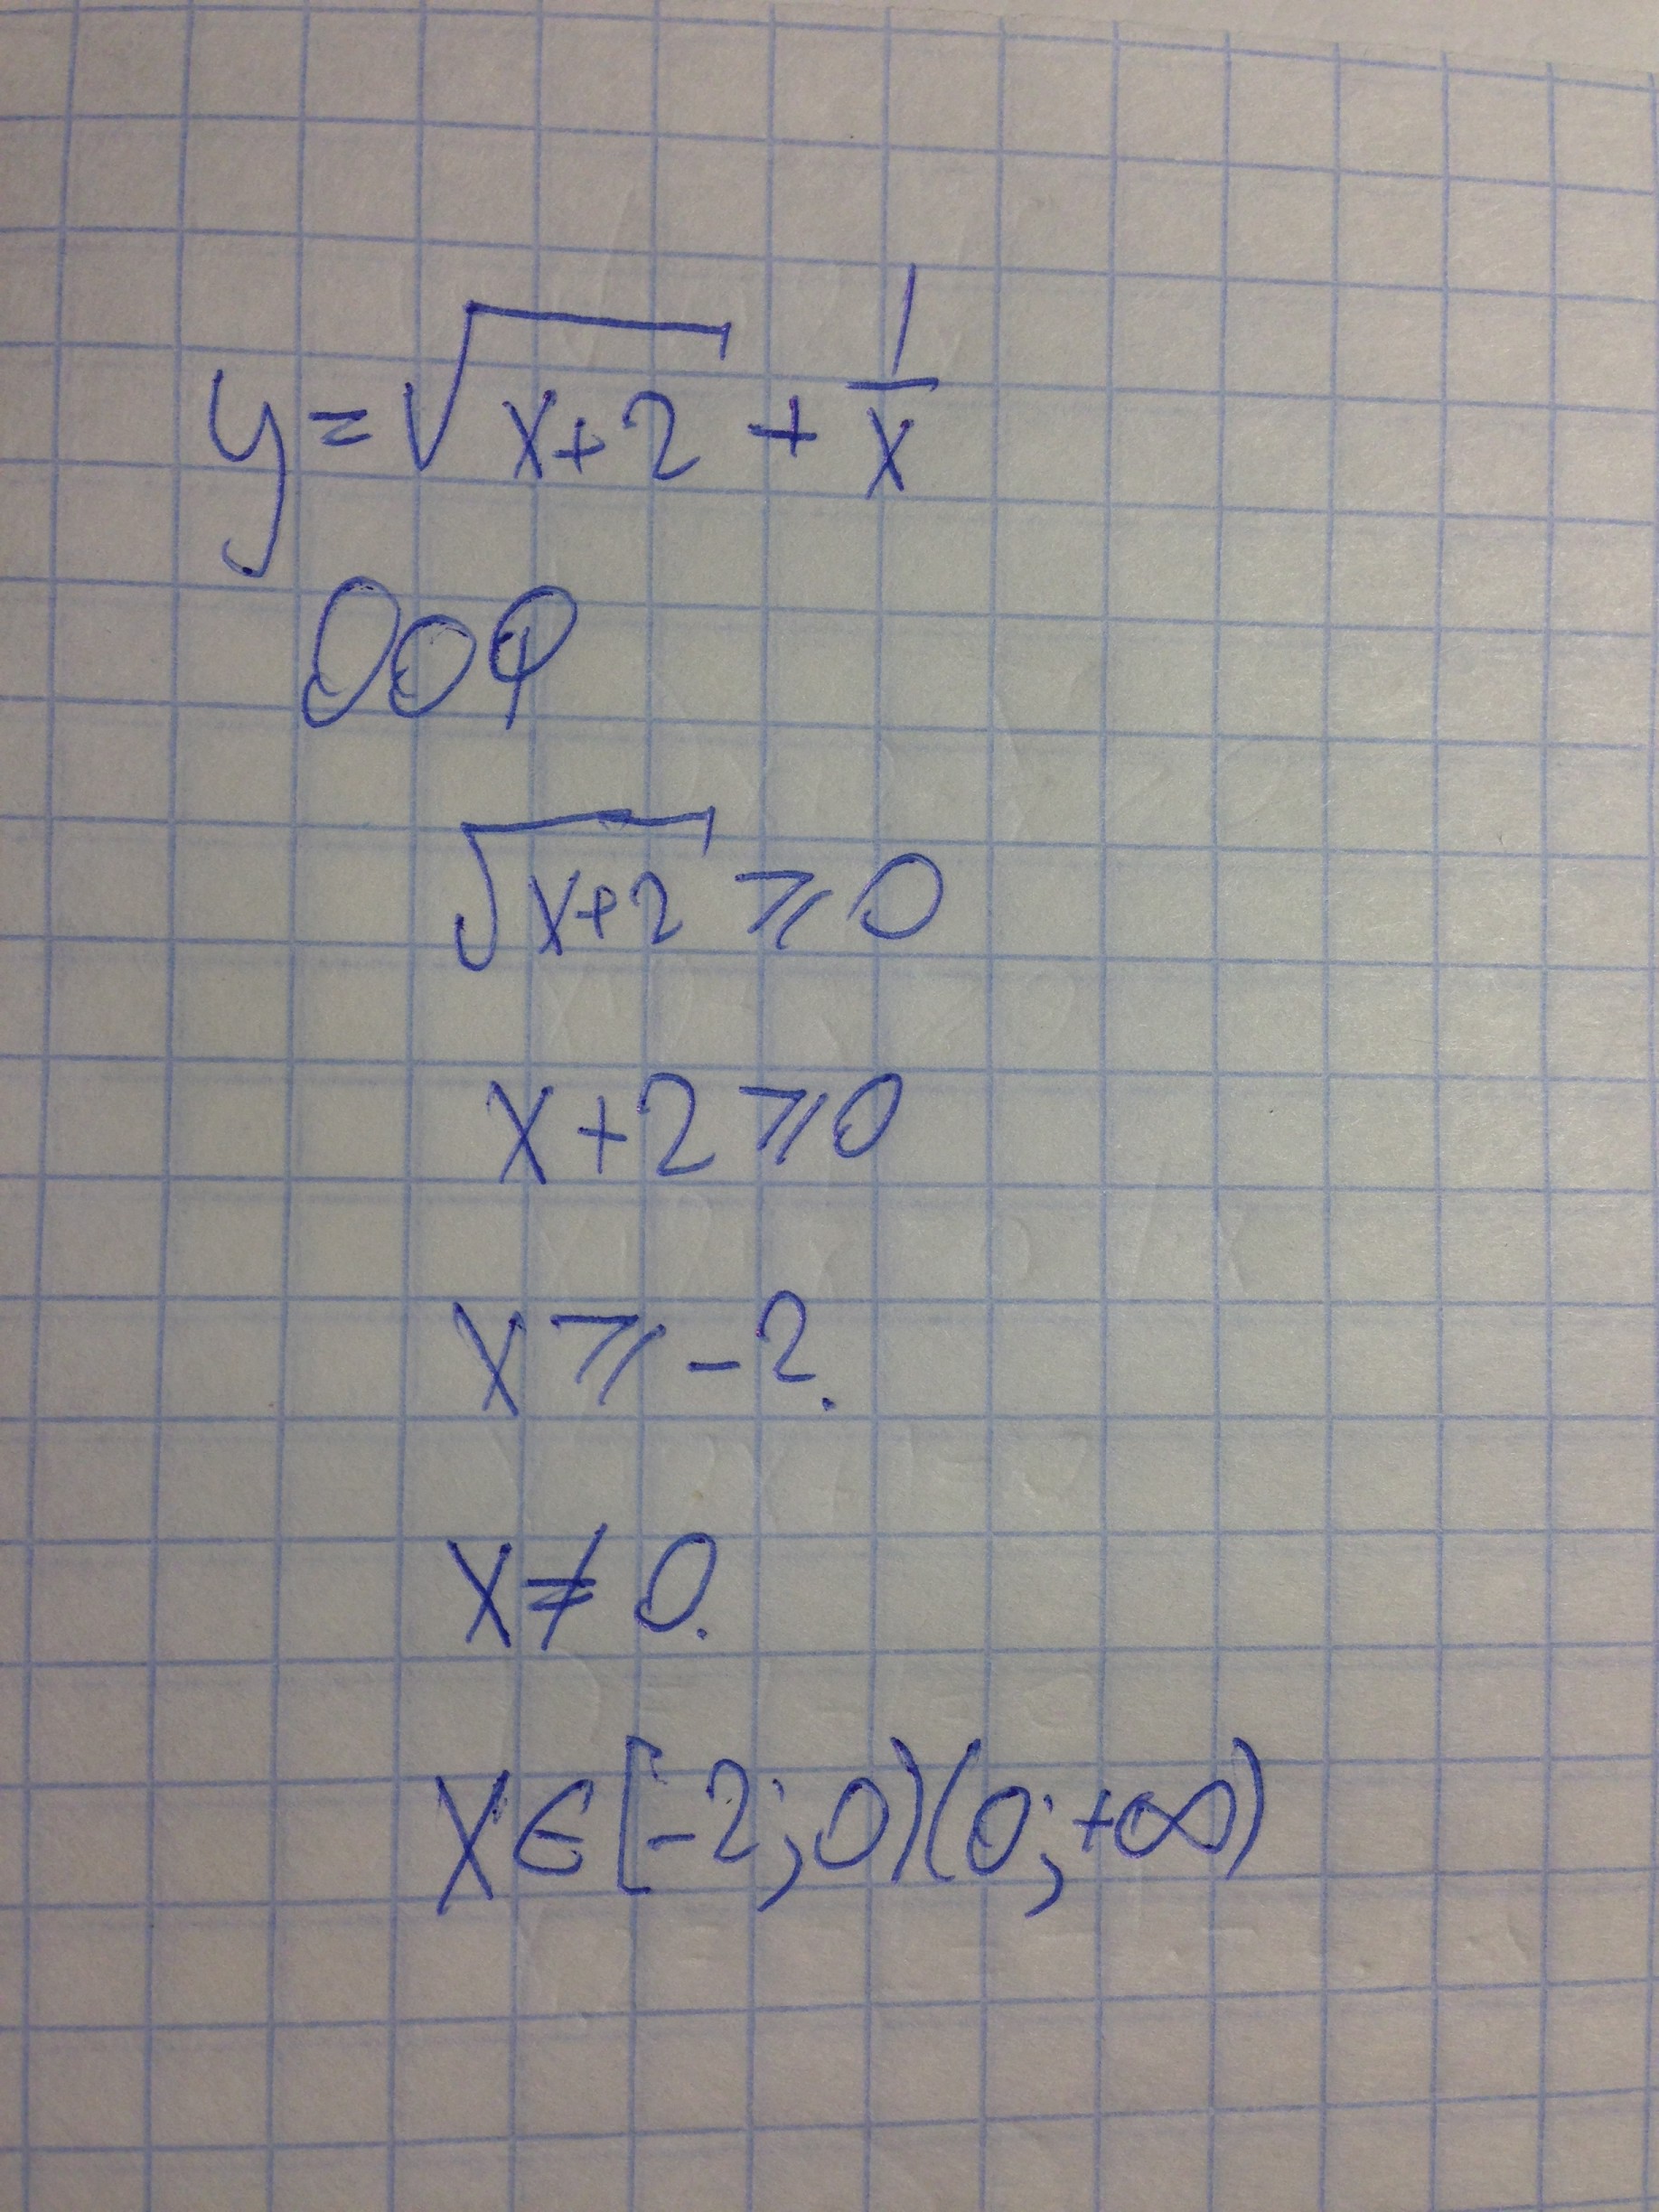 y = √(x+2) + 1/x
ООФ
√(x+2) ⩾ 0
x + 2 ⩾ 0
x ⩾ -2.
x ≠ 0.
x ∈ [-2; 0)(0; +∞)